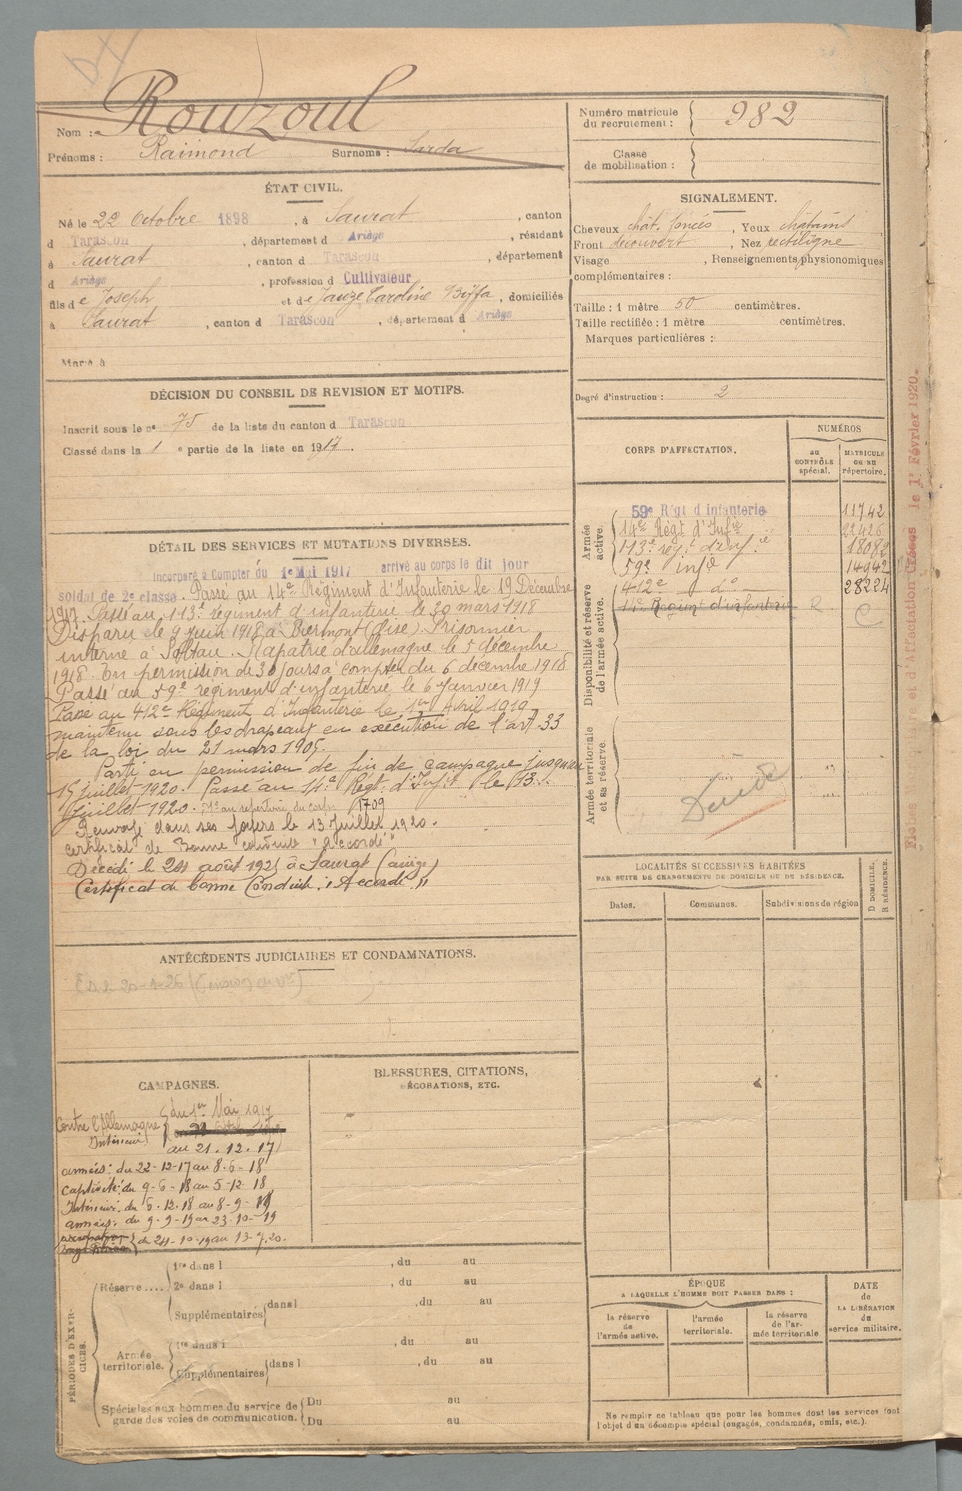 Rouzoul
Nom :
Prénoms : Raimond Surnoms : Sarda
Numéro matricule du recrutement : 982
Classe de mobilisation :
ÉTAT CIVIL.
Né le 22 Octobre 1898, à Saurat, canton
d Tarascon, département d Ariège, résidant
à Saurat, canton d Tarascon, département
d Ariège, profession d Cultivateur
fils de Joseph et de Jauze Caroline Biffa, domiciliés
à Saurat, canton d Tarascon, département d Ariège
Marié à
SIGNALEMENT.
Cheveux chât. foncés, Yeux châtains
Front découvert, Nez rectiligne
Visage , Renseignements physionomiques
complémentaires :
Taille : 1 mètre 50 centimètres.
Taille rectifiée : 1 mètre centimètres.
Marques particulières :
Degré d'instruction : 2
DÉCISION DU CONSEIL DE REVISION ET MOTIFS.
Inscrit sous le n° 75 de la liste du canton d Tarascon
Classé dans la 1 e partie de la liste en 1917.
DÉTAIL DES SERVICES ET MUTATIONS DIVERSES.
Incorporé à Compter du 1e Mai 1917 arrivé au corps le dit jour
soldat de 2e classe. Passé au 14e Régiment d'Infanterie le 19 Décembre
1917. Passé au 113e régiment d'infanterie le 30 mars 1918
Disparu le 9 juin 1918 à Biermont (Oise). Prisonnier
interné à Soltau. Rapatrié d'allemagne le 5 décembre
1918. En permission de 30 jours à compter du 6 décembre 1918
Passé au 59e régiment d'infanterie le 6 Janvier 1919
Passé au 412e Régiment d'Infanterie le 1er Avril 1919
maintenu sous les drapeaux en exécution de l'art 33
de la loi du 21 mars 1905.
Parti en permission de fin de campagne jusqu'au
15 juillet 1920. Passé au 14e Régt. d'Inf le 13
Juillet 1920. No au répertoire du corps 1709
Renvoyé dans ses foyers le 13 Juillet 1920.
certificat de Bonne conduite "accordé"
Décédé le 24 août 1921 à Saurat (ariège)
Certificat de bonne Conduite : "Accordé"
CORPS D'AFFECTATION.
NUMÉROS
au CONTRÔLE spécial.
MATRICULE OU AU répertoire.
Armée active.
59e Régt d Infanterie 11742
14e Régt d'Infie 22426
113e régt d'Infie 18082
59e infie 14942
412e do 28224
Disponibilité et réserve de l'armée active.
14e Régiment d'infanterie R C
Armée territoriale et sa réserve.
Fiches et d'Affectation Créées le 1er Février 1920.
LOCALITÉS SUCCESSIVES HABITÉES
PAR SUITE DE CHANGEMENTS DE DOMICILE OU DE RÉSIDENCE.
Dates. Communes. Subdivisions de région D DOMICILE. R RÉSIDENCE.
ANTÉCÉDENTS JUDICIAIRES ET CONDAMNATIONS.
CAMPAGNES.
Contre l'Allemagne du 1er Mai 1917
Intérieur
au 21.12.17
armées : du 22-12-17 au 8-6-18
Captivité : du 9-6-18 au 5-12-18
Intérieur : du 6.12.18 au 8-9-19
armées : du 9-9-19 au 23-10-19
du 24-10-19 au 13-7.20.
BLESSURES, CITATIONS,
DÉCORATIONS, ETC.
PÉRIODES D'EXERCICES.
Réserve....
1re dans l , du au
2e dans l , du au
Supplémentaires dans l , du au
Armée territoriale.
1re dans l , du au
Supplémentaires dans l , du au
Spéciales aux hommes du service de garde des voies de communication.
Du au
Du au
ÉPOQUE
A LAQUELLE L'HOMME DOIT PASSER DANS :
la réserve de l'armée active.
l'armée territoriale.
la réserve de l'armée territoriale
DATE de LA LIBÉRATION du service militaire.
Ne remplir ce tableau que pour les hommes dont les services font
l'objet d'un décompte spécial (engagés, condamnés, omis, etc.).